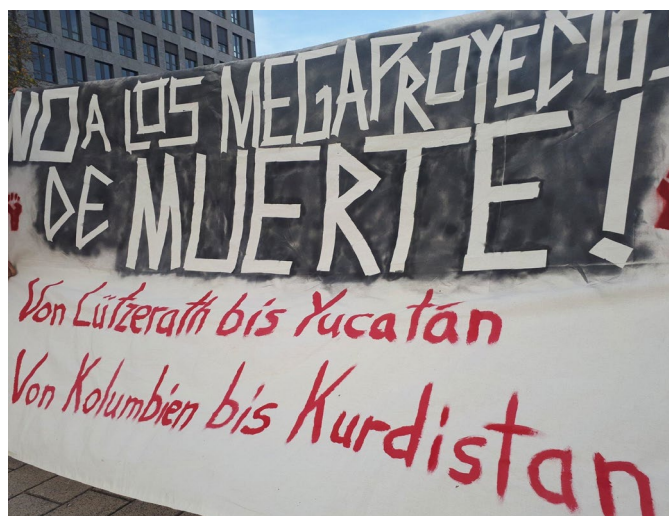 NO A LOS MEGAPROYECTO
DE MUERTE!
Von Lützerath bis Yucatán
Von Kolumbien bis Kurdistan